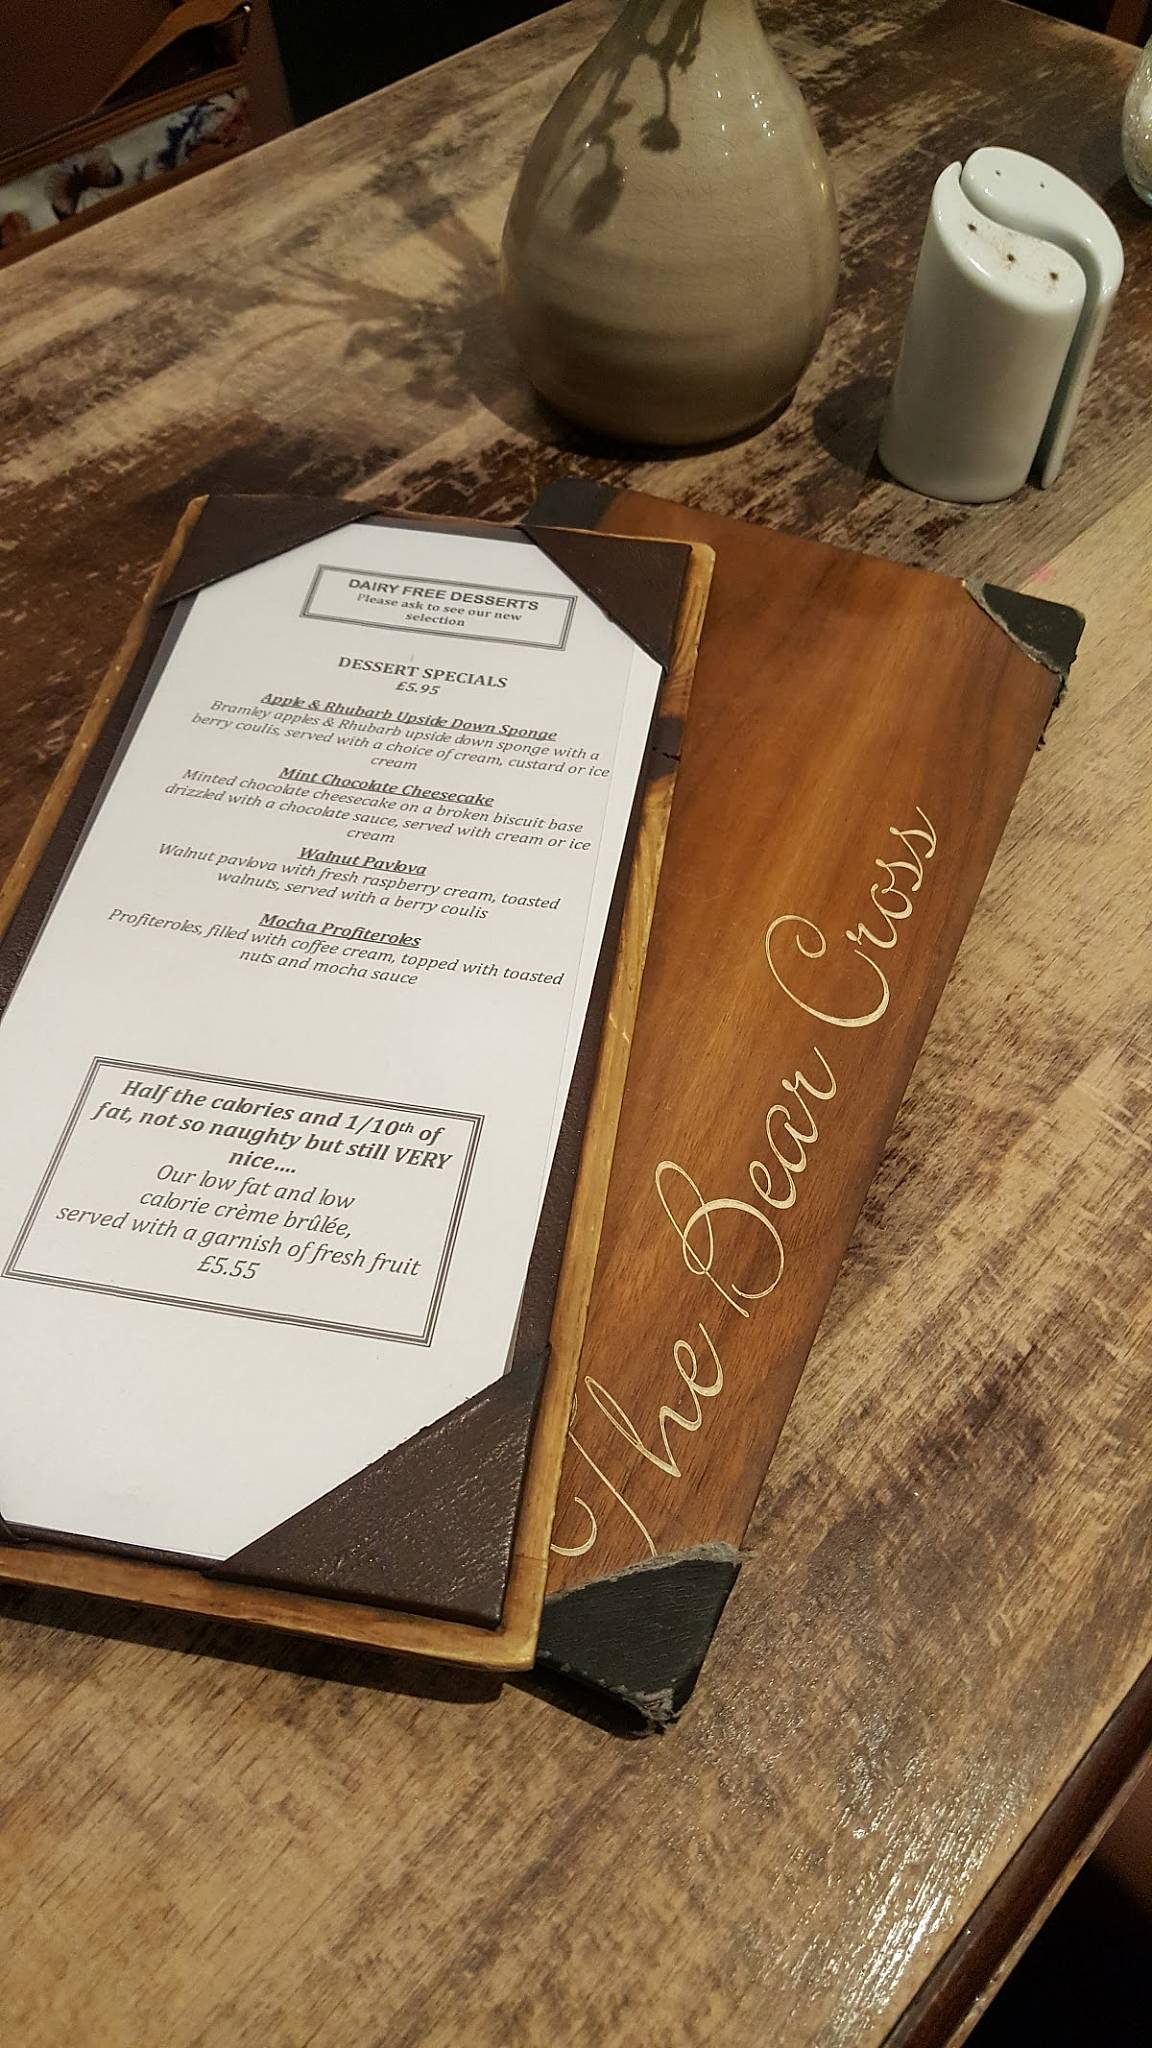 DAIRY FREE DESSERTS
Please ask to see our new
selection
DESSERT SPECIALS
£5.95
Apple & Rhubarb Upside Down Sponge
Bramley apples & Rhubarb upside down sponge with a
berry coulis, served with a choice of cream, custard or ice
cream
Mint Chocolate Cheesecake
Minted chocolate cheesecake on a broken biscuit base
drizzled with a chocolate sauce, served with cream or ice
cream
Walnut Pavlova
Walnut pavlova with fresh raspberry cream, toasted
walnuts, served with a berry coulis
Mocha Profiteroles
Profiteroles, filled with coffee cream, topped with toasted
nuts and mocha sauce
Half the calories and 1/10th of
fat, not so naughty but still VERY
nice....
Our low fat and low
calorie crème brûlée,
served with a garnish of fresh fruit
£5.55
The Bear Cross